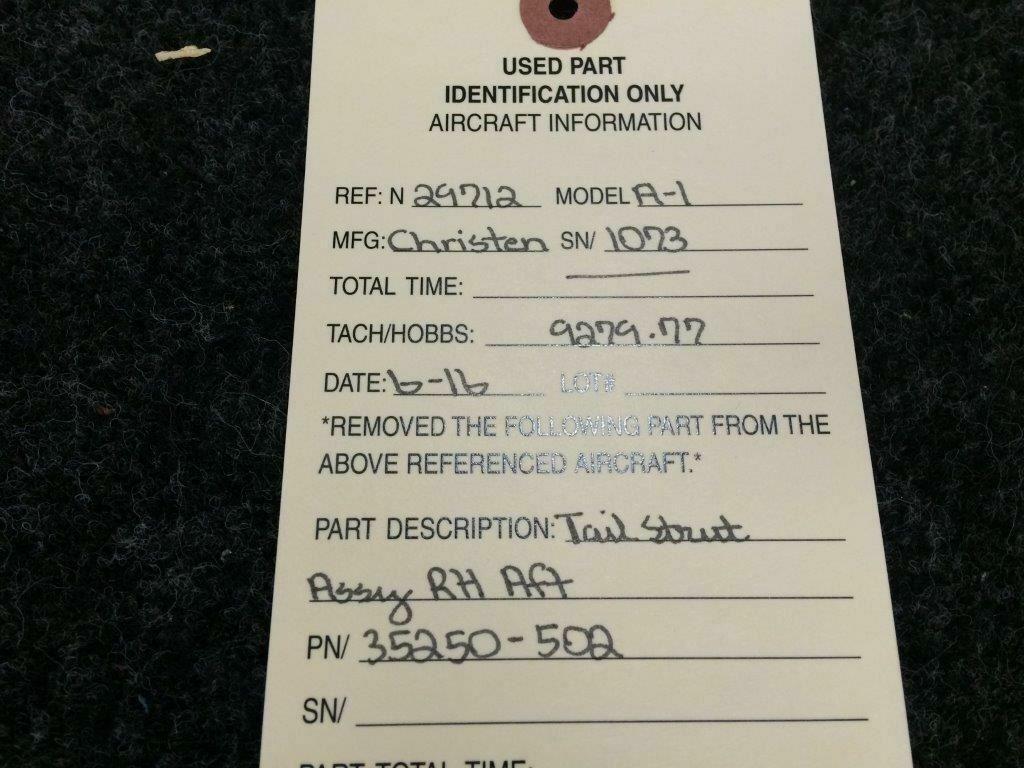 USED PART
IDENTIFICATION ONLY
AIRCRAFT INFORMATION
REF: N 29712 MODEL A-1
MFG: Christen SN/ 1073
TOTAL TIME:
TACH/HOBBS: 9279.77
DATE: 6-16 LOT#
*REMOVED THE FOLLOWING PART FROM THE
ABOVE REFERENCED AIRCRAFT.*
PART DESCRIPTION: Tail Strut
Assy RH Aft
PN/ 35250-502
SN/
PART TOTAL TIME: